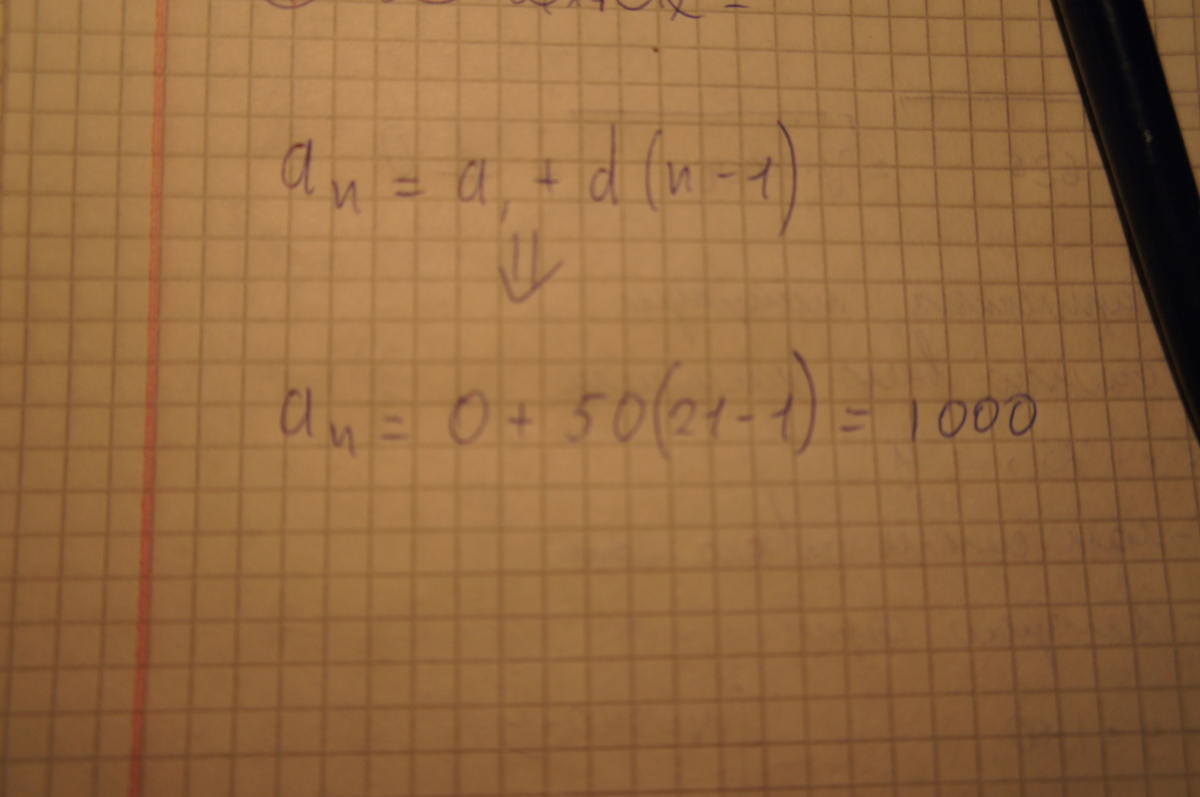 aₙ = a₁ + d(n-1)
⇓
aₙ = 0 + 50(21-1) = 1000